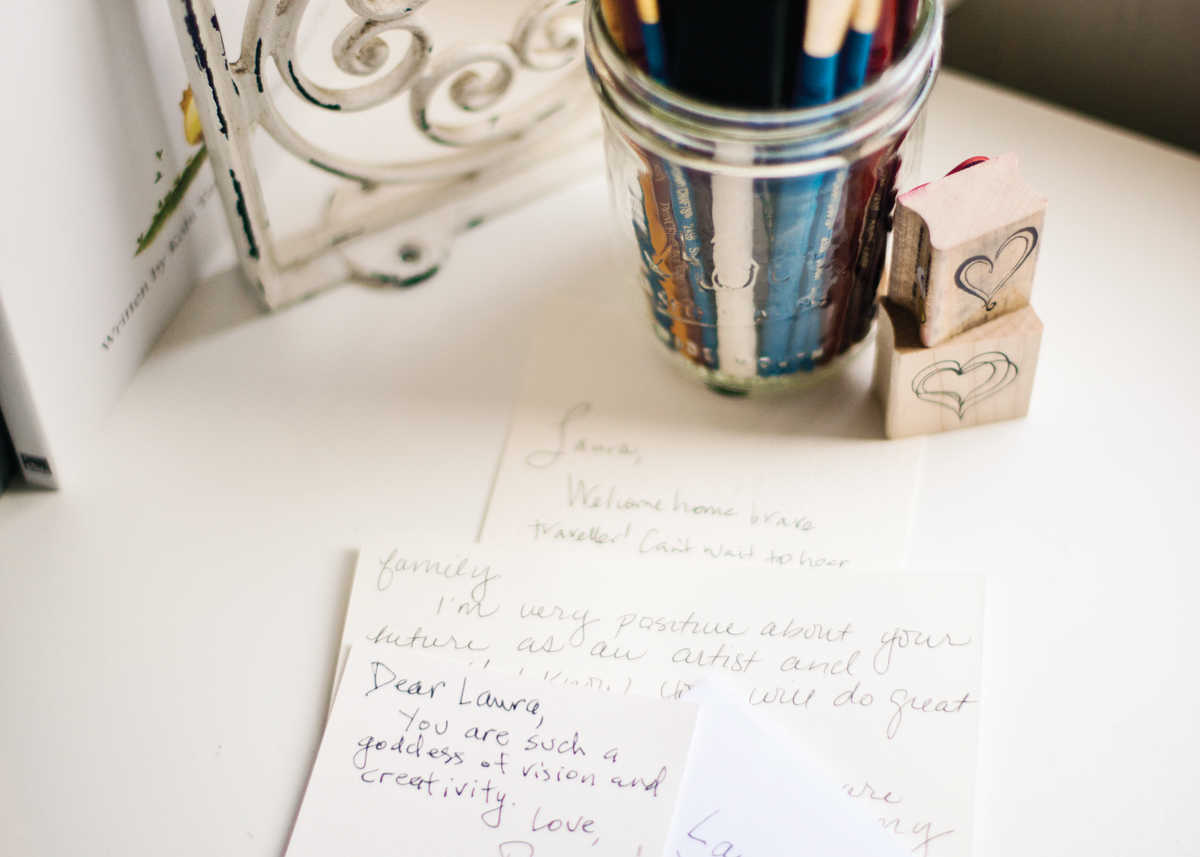 Written by Kobi
Laura,
Welcome home brave
traveller! Can't wait to hear
family.
I'm very positive about your
future as an artist and
know you will do great
are
my
Dear Laura,
You are such a
goddess of vision and
creativity.
Love,
La